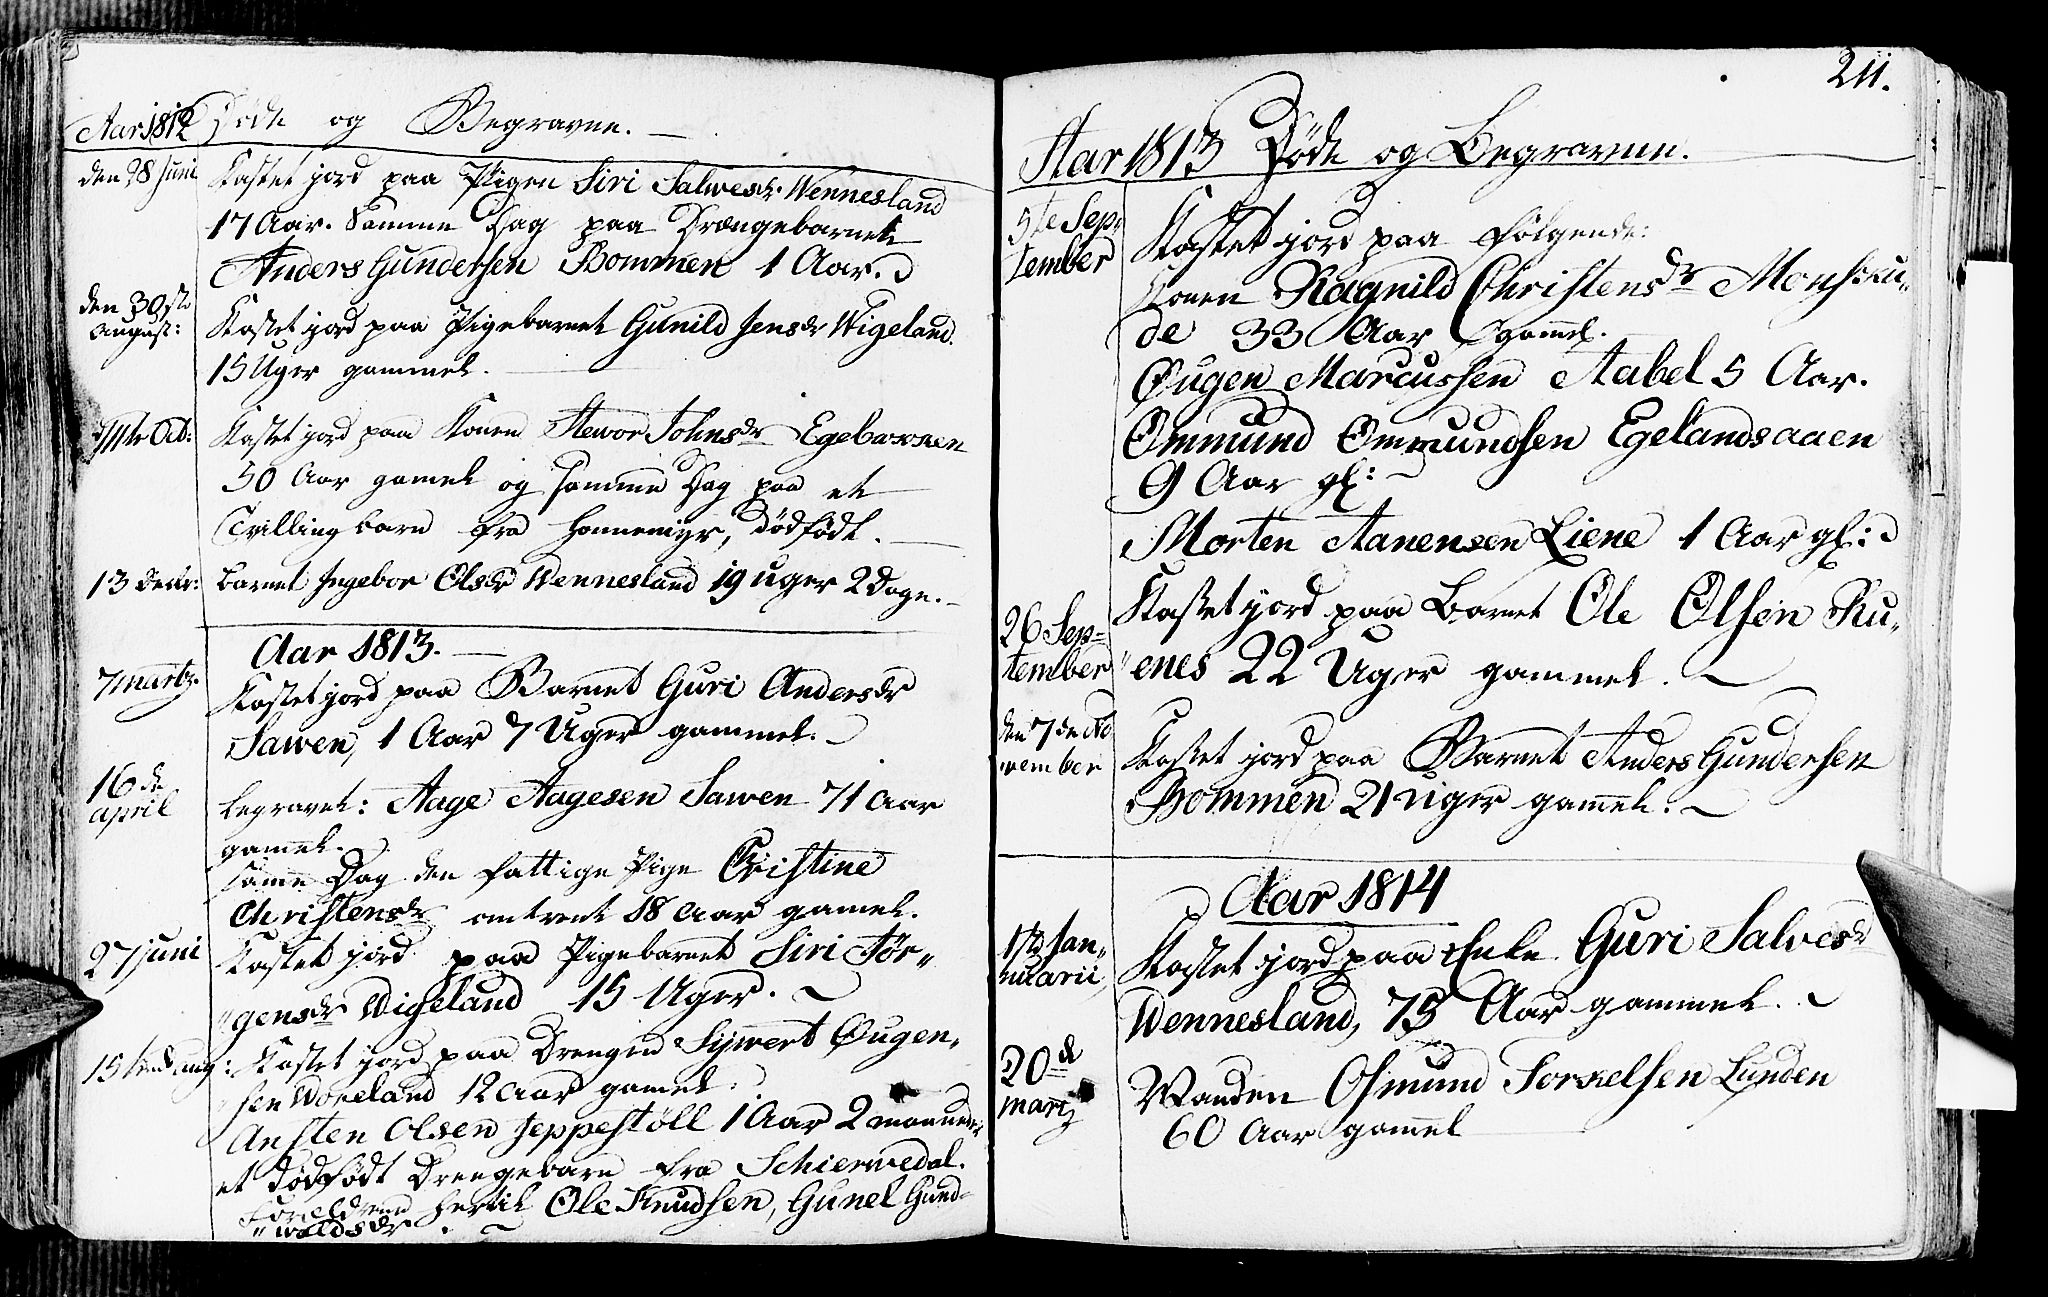 Aar 1812 Døde og Begravne.
den 28 Juni Kastet jord paa Pigen Siri Salvesdr. Wennesland
17 Aar. Samme Dag paa Drængebarnet
Anders Gundersen Bommen 1 Aar.
den 30ste
August: Kastet jord paa Pigebarnet Gunild Jensdr Wigeland.
15 Uger gammel.
Oct: Kastet jord paa Konen Stewor Johnsdr Egebarnen
50 Aar gamel og samme Dag paa et
Tvilling barn fra Honnemyr, dødfødt.
13 Decbr: Barnet Ingebor Olsdr Wennesland 19 uger 2 Dage.
Aar 1813.
7 martz. Kastet jord paa Barnet Guri Andersdr
Sawen, 1 Aar 7 Uger gammel.
16 de
april begravet: Aage Aagesen Sawen 71 Aar
gamel.
samme Dag den fattige Pige Christine
Christensdr omtrent 18 Aar gamel.
27 juni Kastet jord paa Pigebarnet Siri Jør„
„gensdr Wigeland 15 Uger.
15 aug: Kastet jord paa Drengen Sywert Øugen„
sen Woreland 12 Aar gamel.
Ansten Olsen Jeppestöll 1 Aar 2 maaneder
et dødfødt Drengebarn fra Schierwedal.
Foreldrene hertil Ole Knudsen, Gunel Gund-
„waldsdr.
211.
Aar 1813 Døde og Begravne.
5te Sep„
tember Kastet jord paa følgende:
Konen Ragnild Christensdr Monsru„
de 33 Aar gamel.
Øugen Marcussen Aabel 5 Aar.
Ommund Ommundsen Egelandsaaen
9 Aar gl:
Morten Aanensen Liene 1 Aar gl:
26 Sep=
tember Kastet jord paa Barnet Ole Olsen Ru„
„enes 22 Uger gammel.
den 7de No
vember Kastet jord paa Barnet Anders Gundersen
Bommen 21 Uger gamel.
Aar 1814
Jan„
nuarii Kastet jord paa Enke Guri Salvesdr
Wennesland, 75 Aar gammel.
20de
martz Manden Osmund Torkelsen Lunden
60 Aar gamel